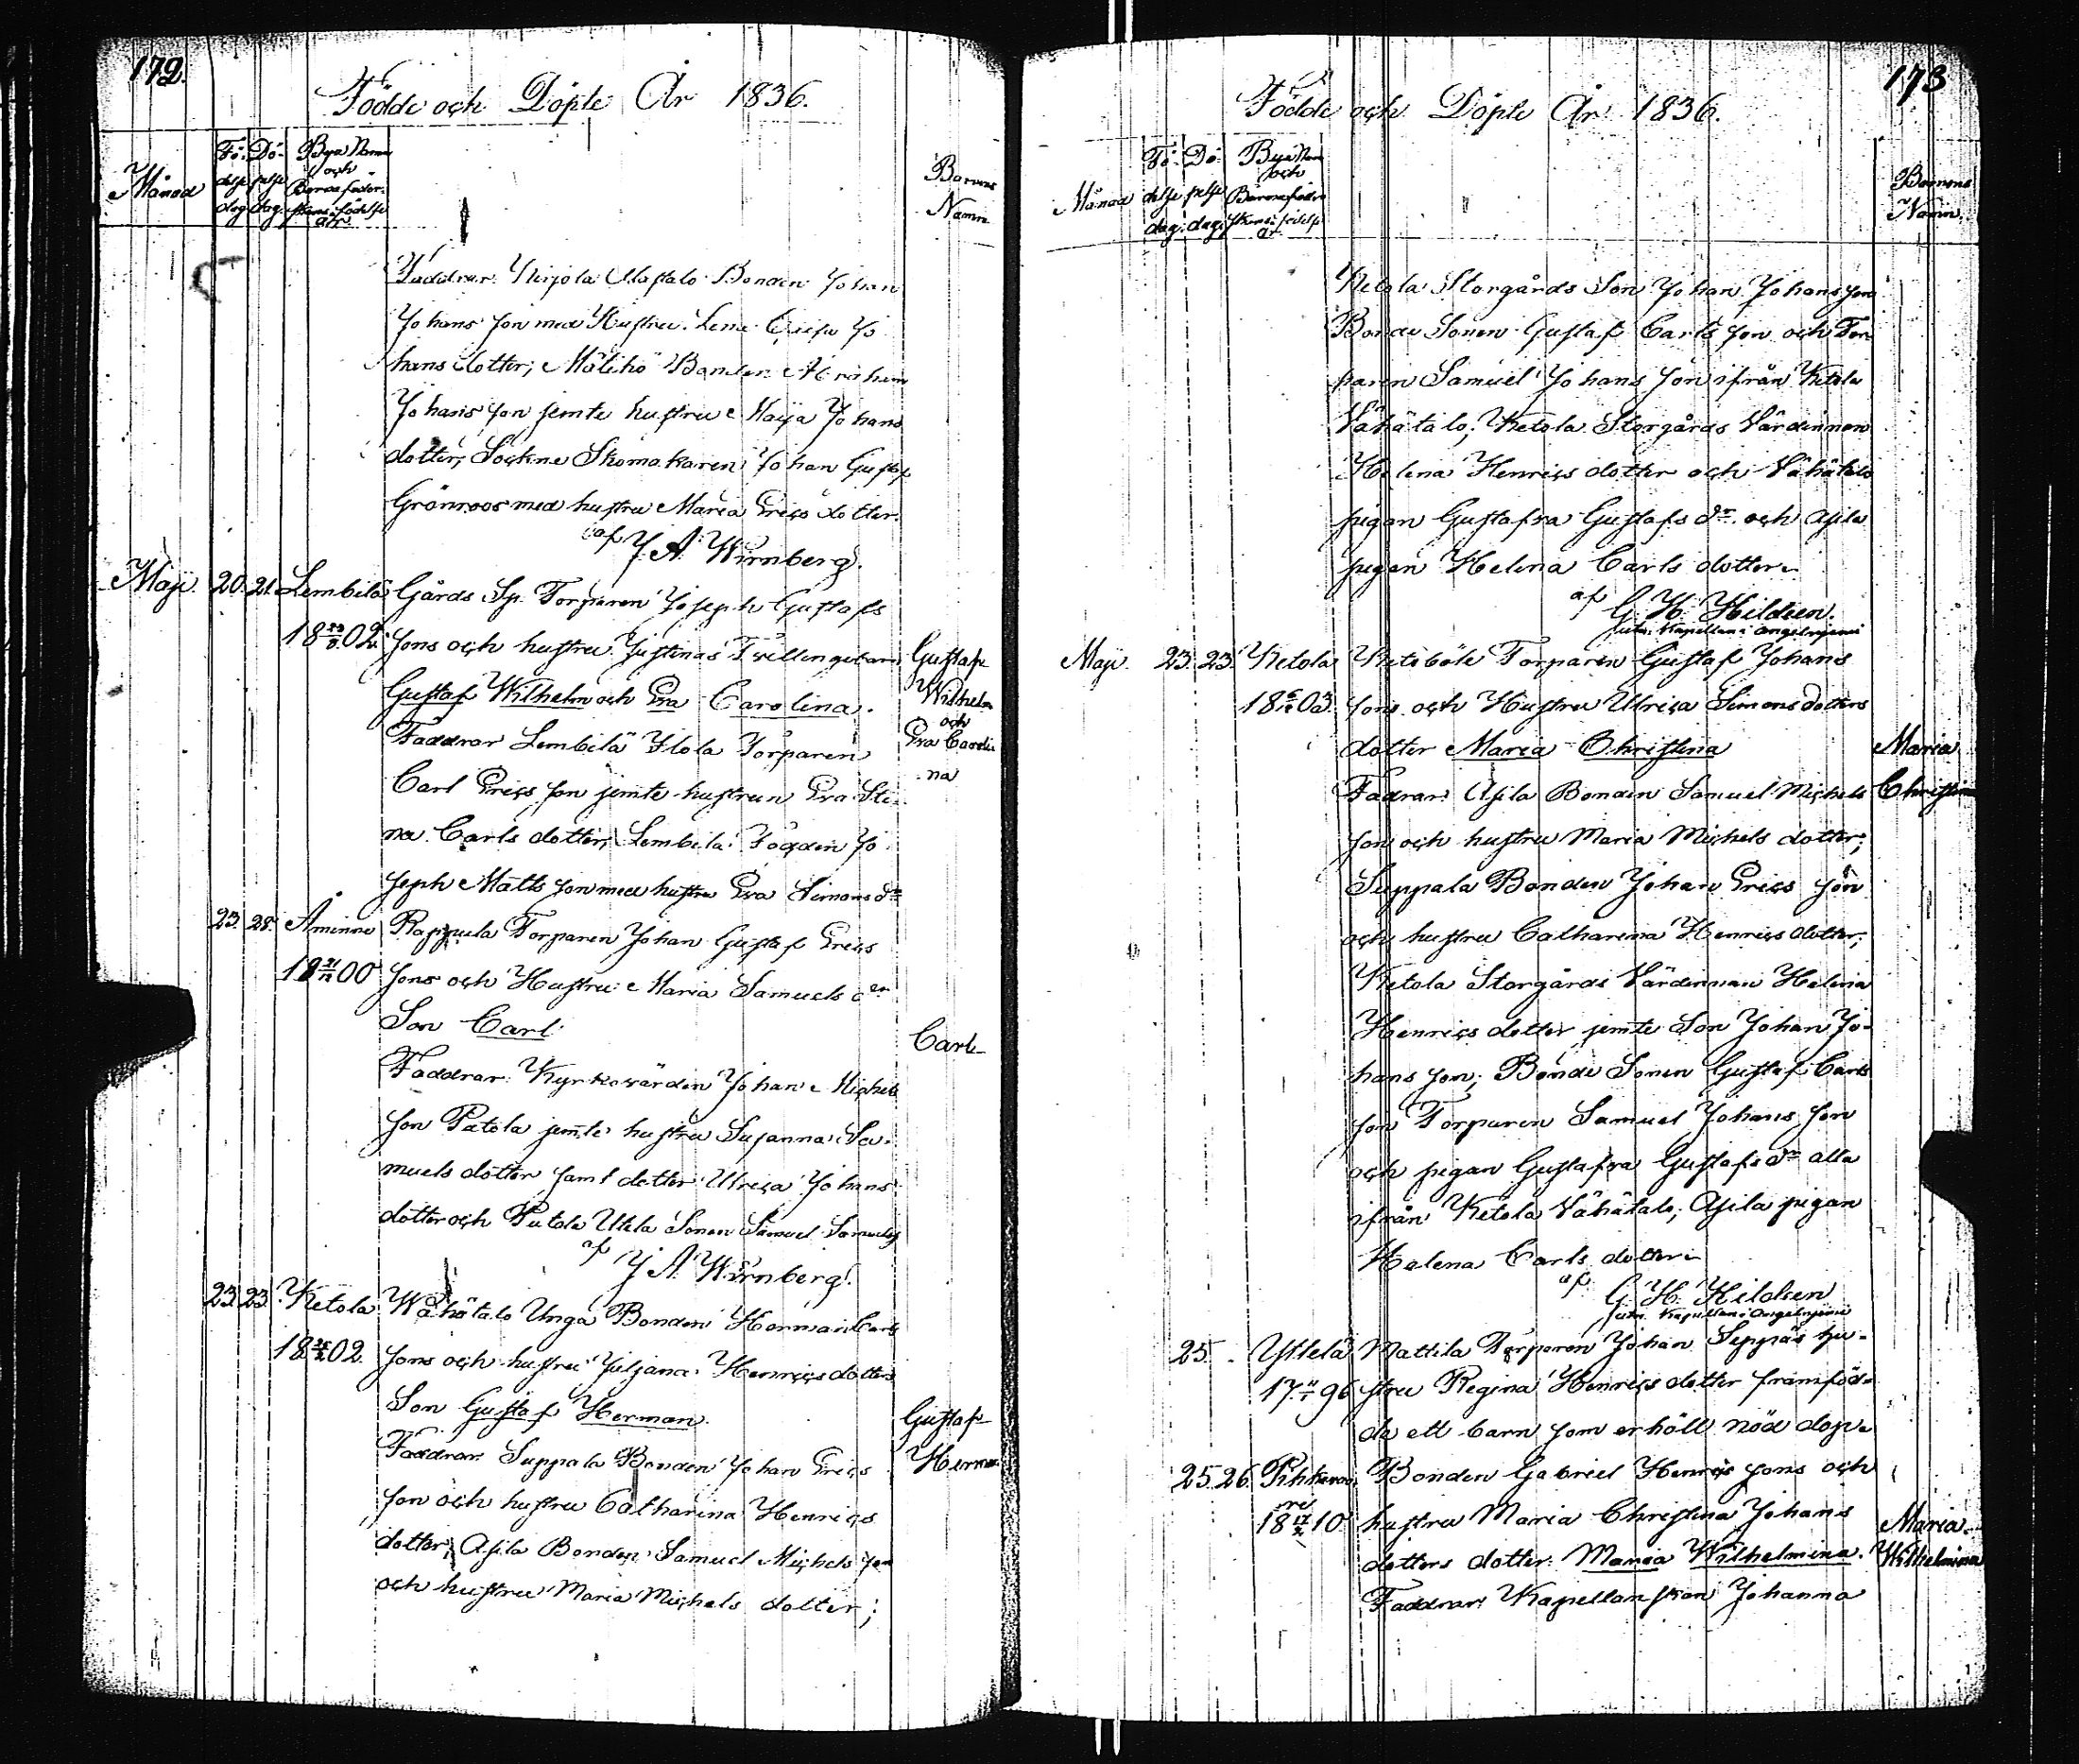 172.
Födde och Döpte År 1836.
Månad
Fö- delse dag
Dö- pelse dag
Bya Namn och Barnaföder- skans födelse år
Barnens Namn
Faddrar Bonden Johan
Johans son med Hustru Lena Lisa Jo
hans dotter; Bonden Abraham
Johans son jemte hustru Maija Johans
dotter, Sockne Skomakaren Johan Gustaf
Grönroos med hustru Maria Erics dotter.
af J. A. Wirnberg.
Maji. 20. 21. Lembilä Gårds Sp. Torparen Joseph Gustafs
18 02. sons och hustru Justinas Tvillingebarn
Gustaf Wilhelm och Eva Carolina.
Gustaf
Wilhelm
och
Eva Caroli
na
Faddrar Lembilä Ylola Torparen
Carl Erics son jemte hustrun Eva Sti-
na Carls dotter, Lembila Jo
seph Matts son med hustru Eva Simons dr
23. 28. Åminne Rappula Torparen Johan Gustaf Erics
18 00 sons och Hustru Maria Samuels
Son Carl
Carl
Faddrar Kyrkovärden Johan Michels
son Patola jemte hustru Susanna Sa-
muels dotter samt dotter Ulrica Johans
dotter och Patola Utela Sonen Samuel Samuels
af J A. Wirnberg.
23. 23. Ketola Wähätalo Unga Bonden Herman Carls
18 02. sons och hustru Juljana Henrics dotters
Son Gustaf Herman.
Gustaf
Herman
Faddrar Suppala Bonden Johan Erics
son och hustru Catharina Henrics
dotter, Asila Bonden Samuel Michels son
och hustru Maria Michels dotter;
173
Födde och Döpte År 1836.
Månad
Fö- delse dag.
Dö- pelse dag.
Bya Namn och Barnaföder- skans födelse år
Barnens Namn.
Ketola Storgårds Son Johan Johans son
Bonde Sonen Gustaf Carls son och Tor-
paren Samuel Johans son ifrån Ketola
Vähätalo; Ketola Storgårds Värdinnan
Helena Henrics dotter och Vähätalo
pigan Gustafva Gustafs dr. och Asila
pigan Helena Carls dotter
af G. H. Hildeen.
Kapellan i Angelniemi
Maji. 23. 23. Ketola Ketoböle Torparen Gustaf Johans
18 03. sons och Hustru Ulrica Simons dotters
dotter Maria Christina
Maria
Christina
Fadrar. Asila Bonden Samuel Michels
son och hustru Maria Michels dotter;
Suppala Bonden Johan Erics son
och hustru Catharina Henrics dotter;
Ketola Storgårds Värdinnan Helena
Henrics dotter jemte Son Johan Jo-
hans son; Bonde Sonen Gustaf Carls
son Torparen Samuel Johans son
och pigan Gustafva Gustafs dr alla
ifrån Ketola Vähätalo; Asila pigan
Helena Carls dotter
af G. H. Hildeen
Kapellan i Angelniemi
25. Yltelä Mattila Torparen Johan Seppäs hu-
17 96 stru Regina Henrics dotter framföd-
de ett barn som erhöll nöd dop.
25. 26. Bonden Gabriel Henrics sons och
18 10. hustru Maria Christina Johans
dotters dotter. Maria Wilhelmina.
Maria
Wilhelmina
Faddrar Kapellanskan Johanna